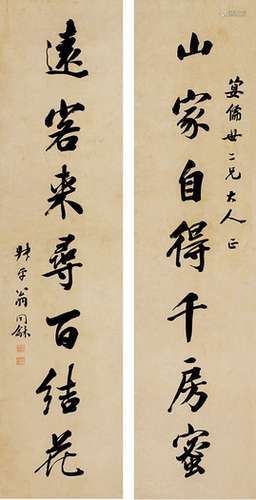 宴倫世二兄大人正
山家自得千房蜜
遠客来尋百结花
叔平翁同龢